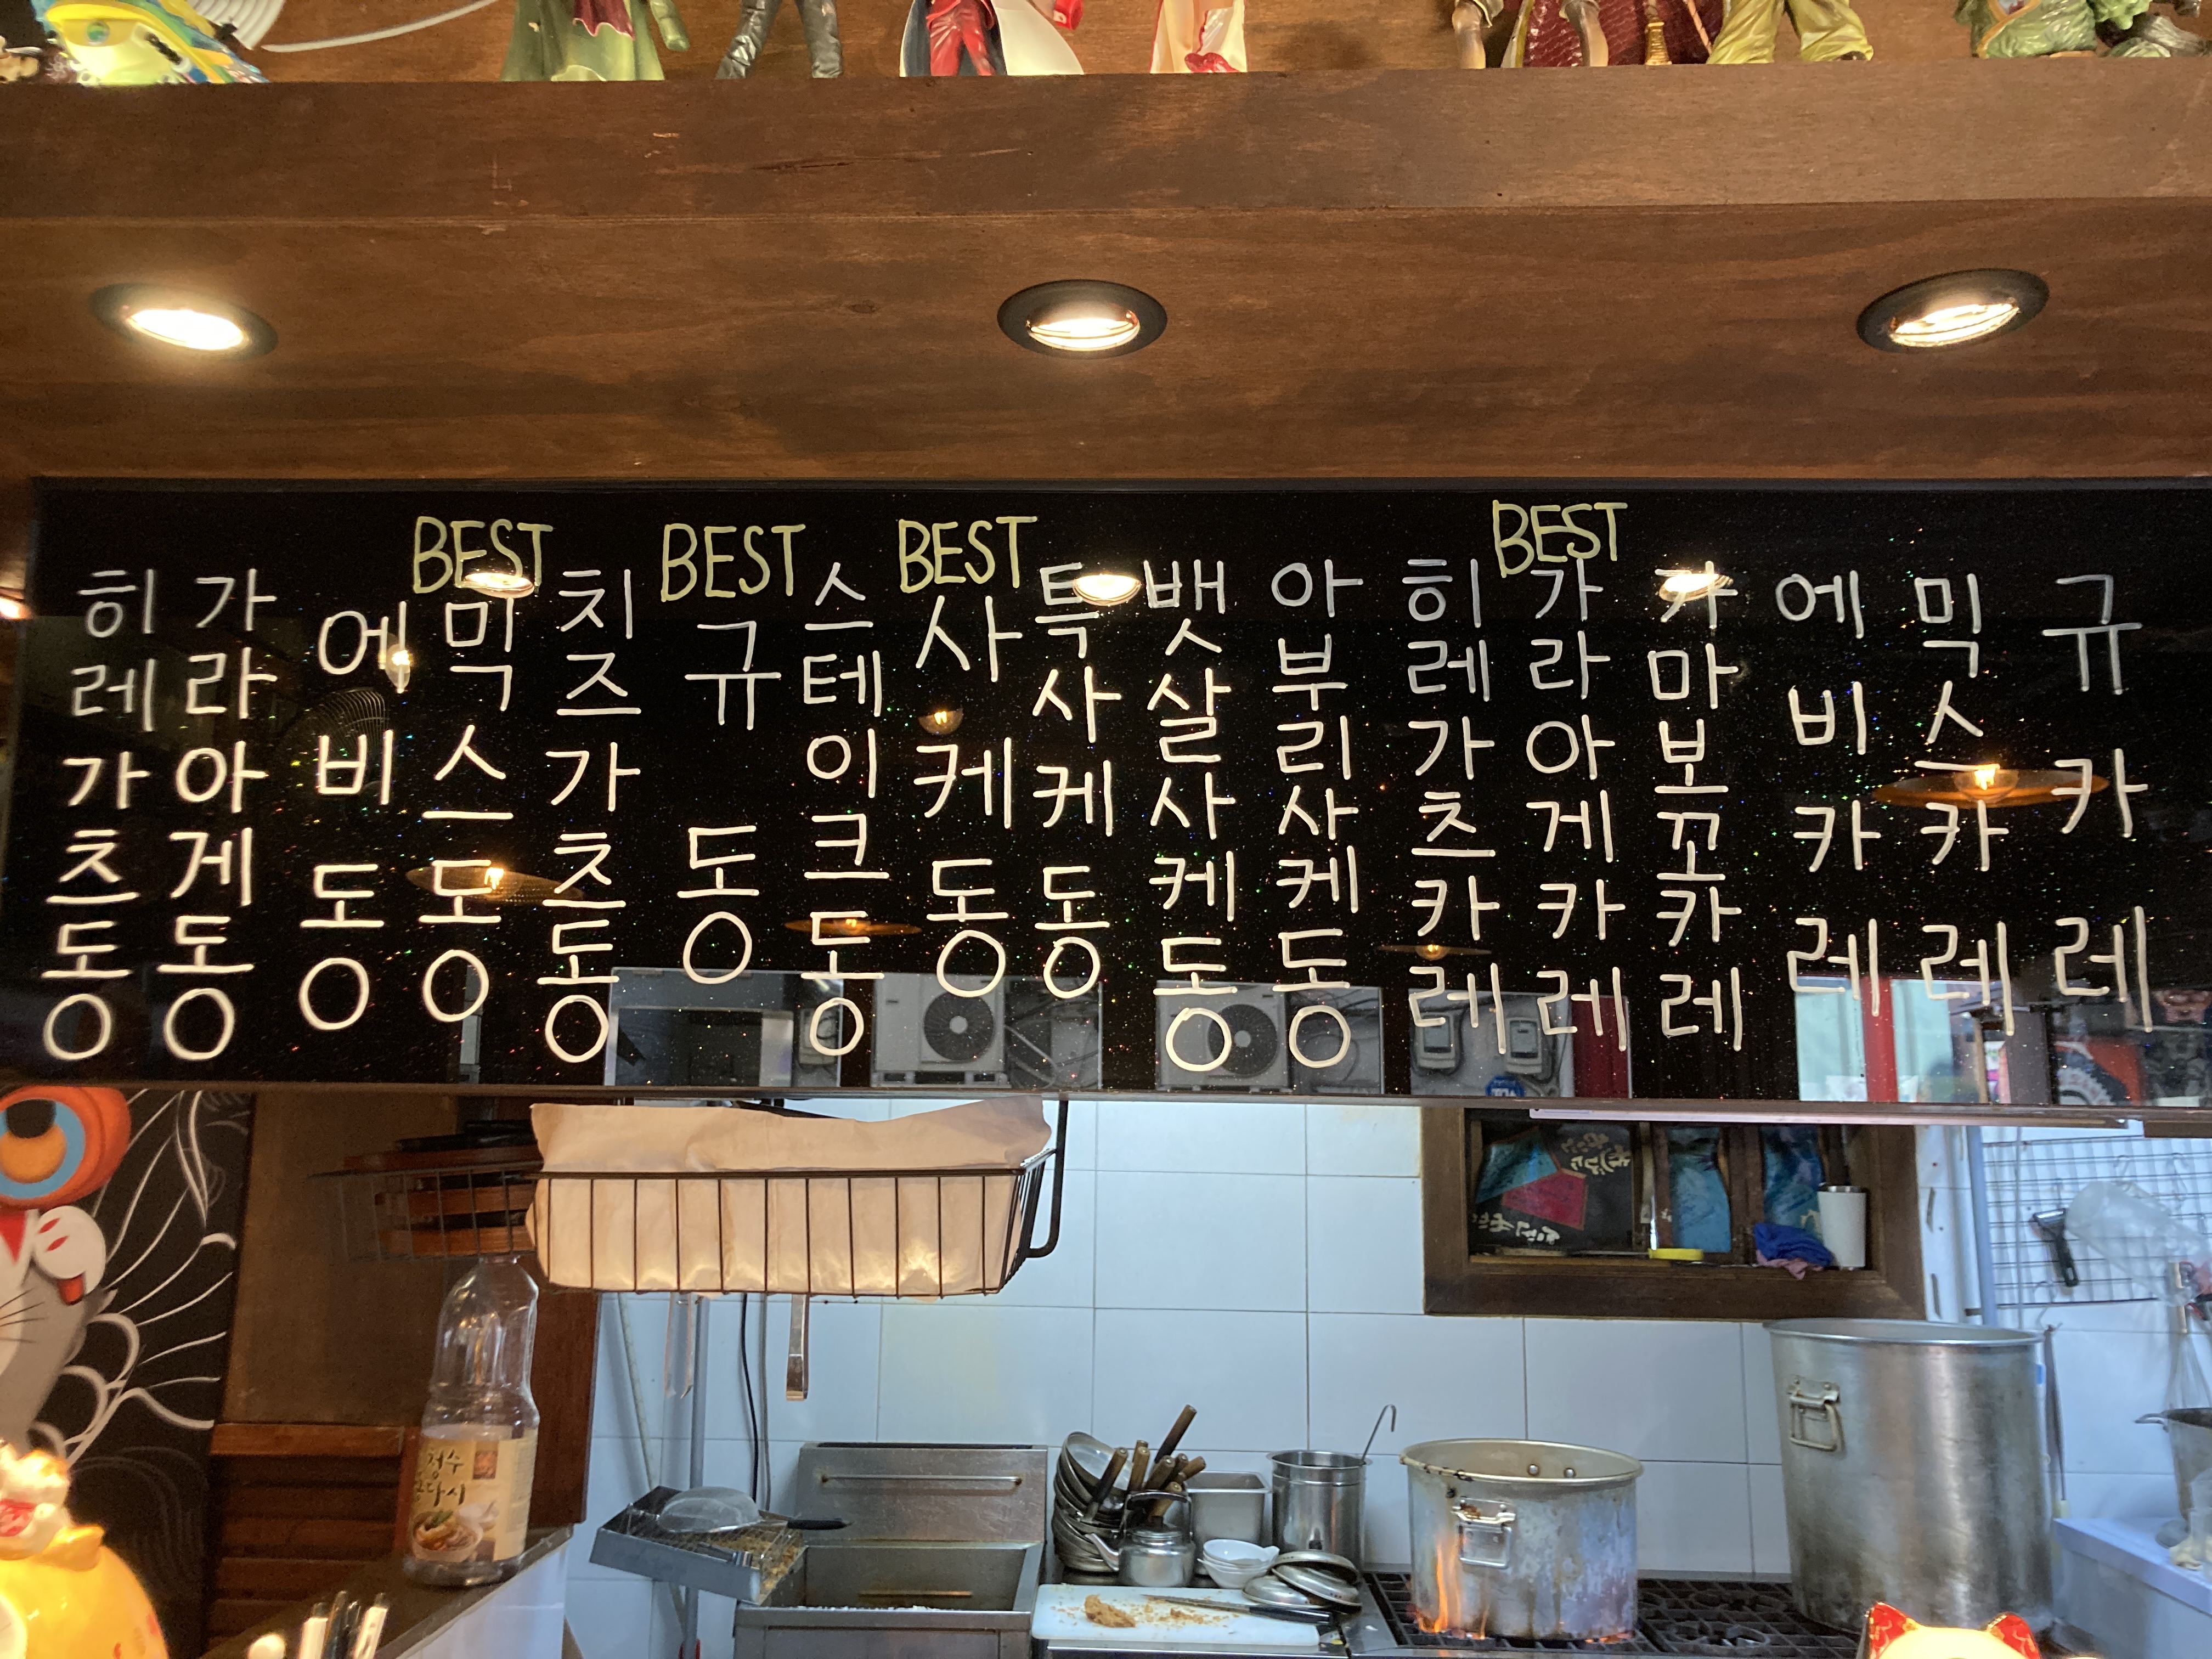 히레가츠동
가라아게동
에비동
BEST
믹스동
치즈가츠동
BEST
규동
스테이크동
BEST
사케동
특사케동
뱃살사케동
아부리사케동
히레가츠카레
BEST
가라아게카레
가마보꼬카레
에비카레
믹스카레
규카레